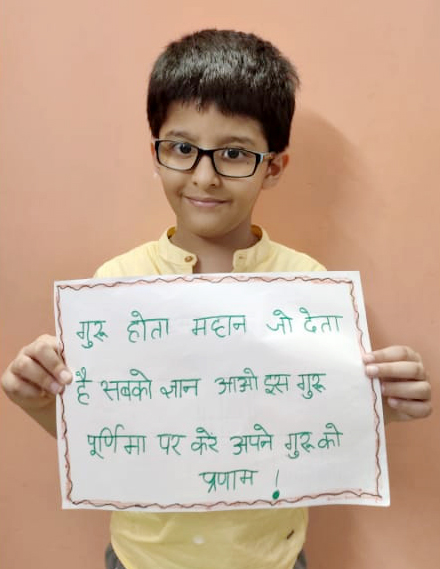 गुरू होता महान जो देता
है सबको ज्ञान आओ इस गुरू
पूर्णिमा पर करें अपने गुरू को
प्रणाम !